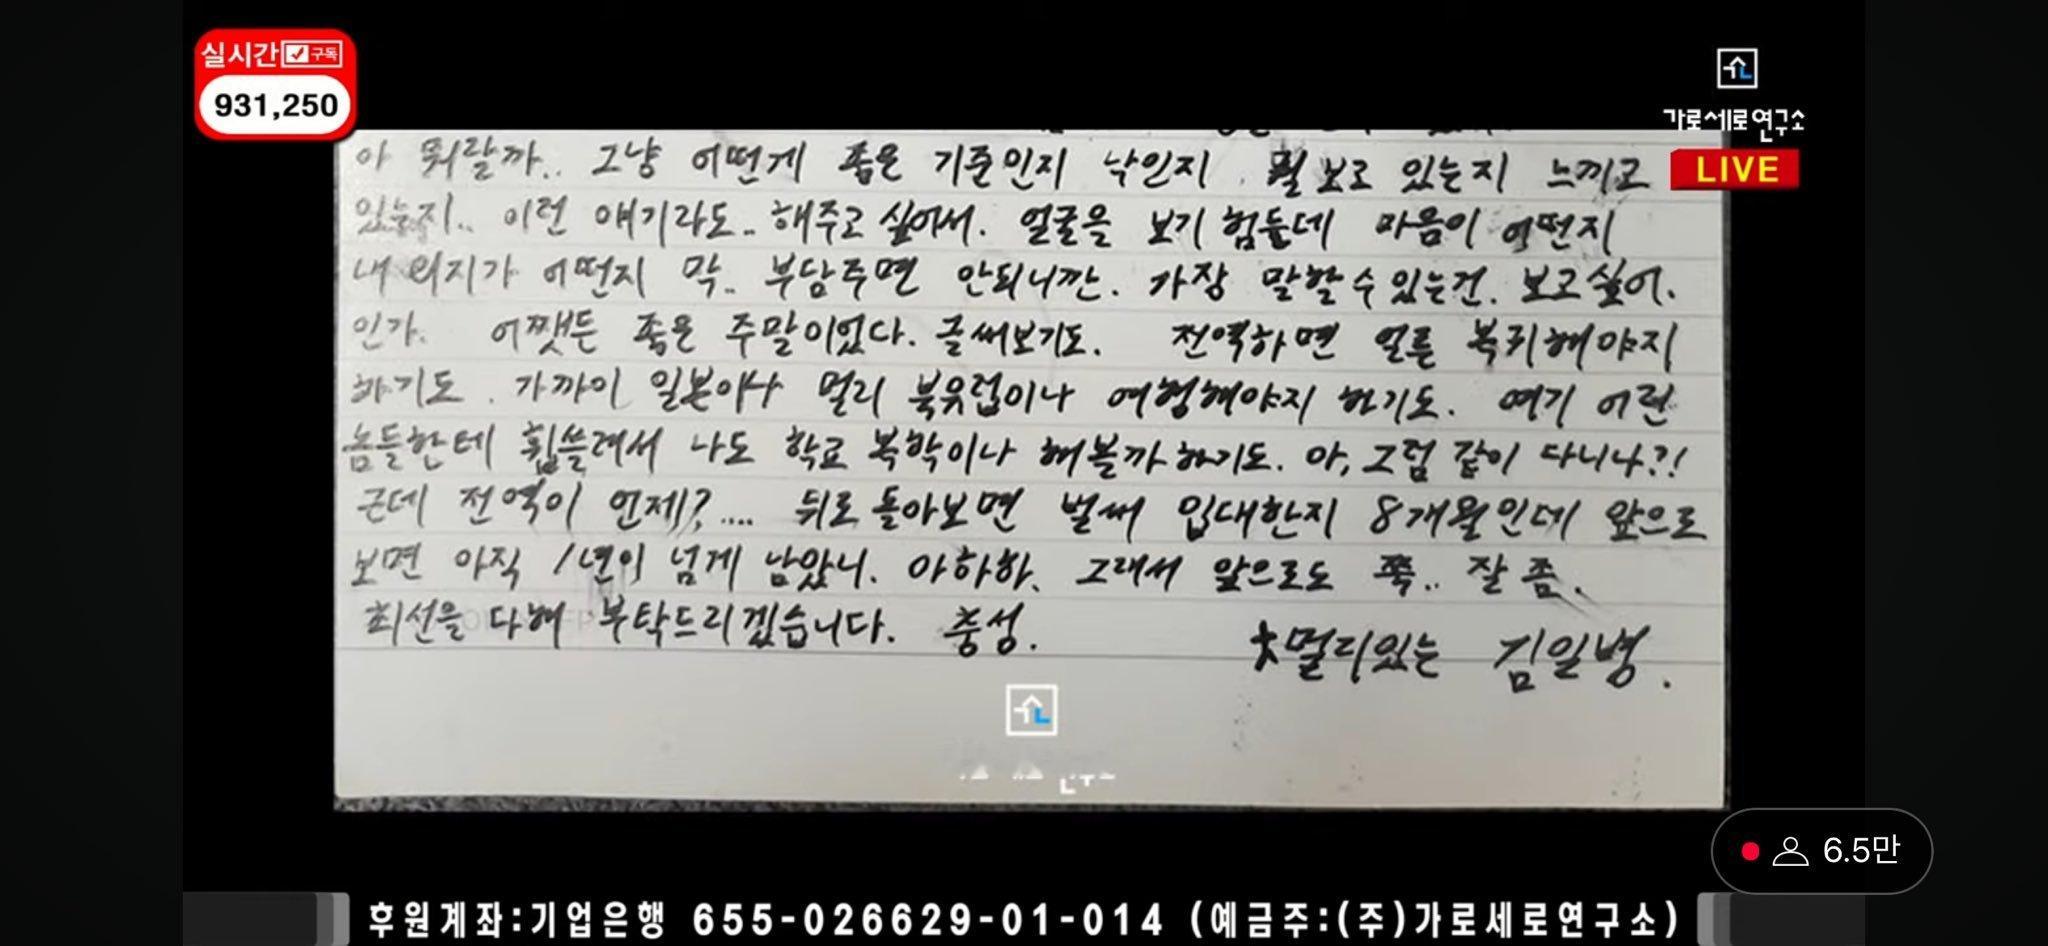 실시간 구독
931,250
가로세로연구소
LIVE
아 뭐랄까.. 그냥 어떤게 좋은 기준인지 낙인지 뭘 보고 있는지 느끼고
있는지.. 이런 얘기라도.. 해주고 싶어서. 얼굴을 보기 힘든데 마음이 어떤지
내 의지가 어떤지 막.. 부담주면 안되니깐. 가장 말할 수 있는건. 보고싶어.
인가. 어쨋든 좋은 주말이었다. 글써보기도. 전역하면 얼른 복귀해야지
하기도. 가까이 일본이나 멀리 북유럽이나 여행해야지 하기도. 여기 어린
놈들한테 휩쓸려서 나도 학교 복학이나 해볼까 하기도. 아, 그럼 같이 다니나?!
근데 전역이 언제?.... 뒤로 돌아보면 벌써 입대한지 8개월인데 앞으로
보면 아직 1년이 넘게 남았니. 아하하. 그래서 앞으로도 쭉.. 잘 좀.
최선을 다해 부탁드리겠습니다. 충성.
멀리있는 김일병.
6.5만
후원계좌:기업은행 655-026629-01-014 (예금주:(주)가로세로연구소)